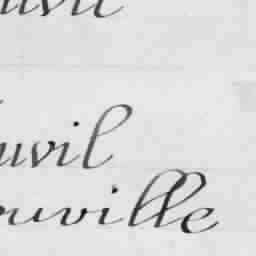 uvil
uvil
uville